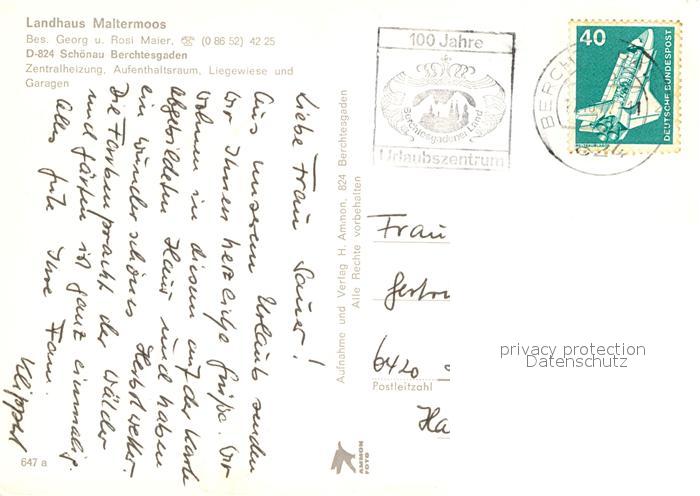 Landhaus Maltermoos
Bes. Georg u. Rosi Maier, ☎ (0 86 52) 42 25
D-824 Schönau Berchtesgaden
Zentralheizung, Aufenthaltsraum, Liegewiese und
Garagen
Liebe Frau Sauer!
Aus unserem Urlaub senden
wir Ihnen herzliche Grüße. Wir
wohnen in diesem auf der Karte
abgebildeten Haus und haben
ein wunderschönes Herbstwetter.
Die Farbenpracht der Wälder
und Gärten ist ganz einmalig.
Alles Gute Ihre Fam.
Klippel
647 a
Aufnahme und Verlag H. Ammon, 824 Berchtesgaden
Alle Rechte vorbehalten
AMMON
FOTO
100 Jahre
Berchtesgadener Land
Urlaubszentrum
BERCH
824
40
DEUTSCHE BUNDESPOST
Frau
Gertru
6420
Postleitzahl
Ha
privacy protection
Datenschutz